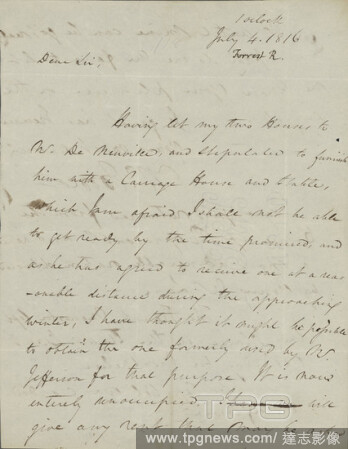 1 oclock
July 4. 1816
Forrest R.
Dear Sir,
Having let my two Houses to
Mr. De Neuville, and stipulated to furnish
him with a Carriage House and Stable,
which I am afraid I shall not be able
to get ready by the time promised, and
as he has agreed to receive one at a reas
-onable distance during the approaching
winter, I have thought it might be possible
to obtain the one formerly used by Mr
Jefferson for that purpose. It is now
entirely unoccupied. will
give any rent that may be
TPG
www.tpgnews.com/ 達志影像